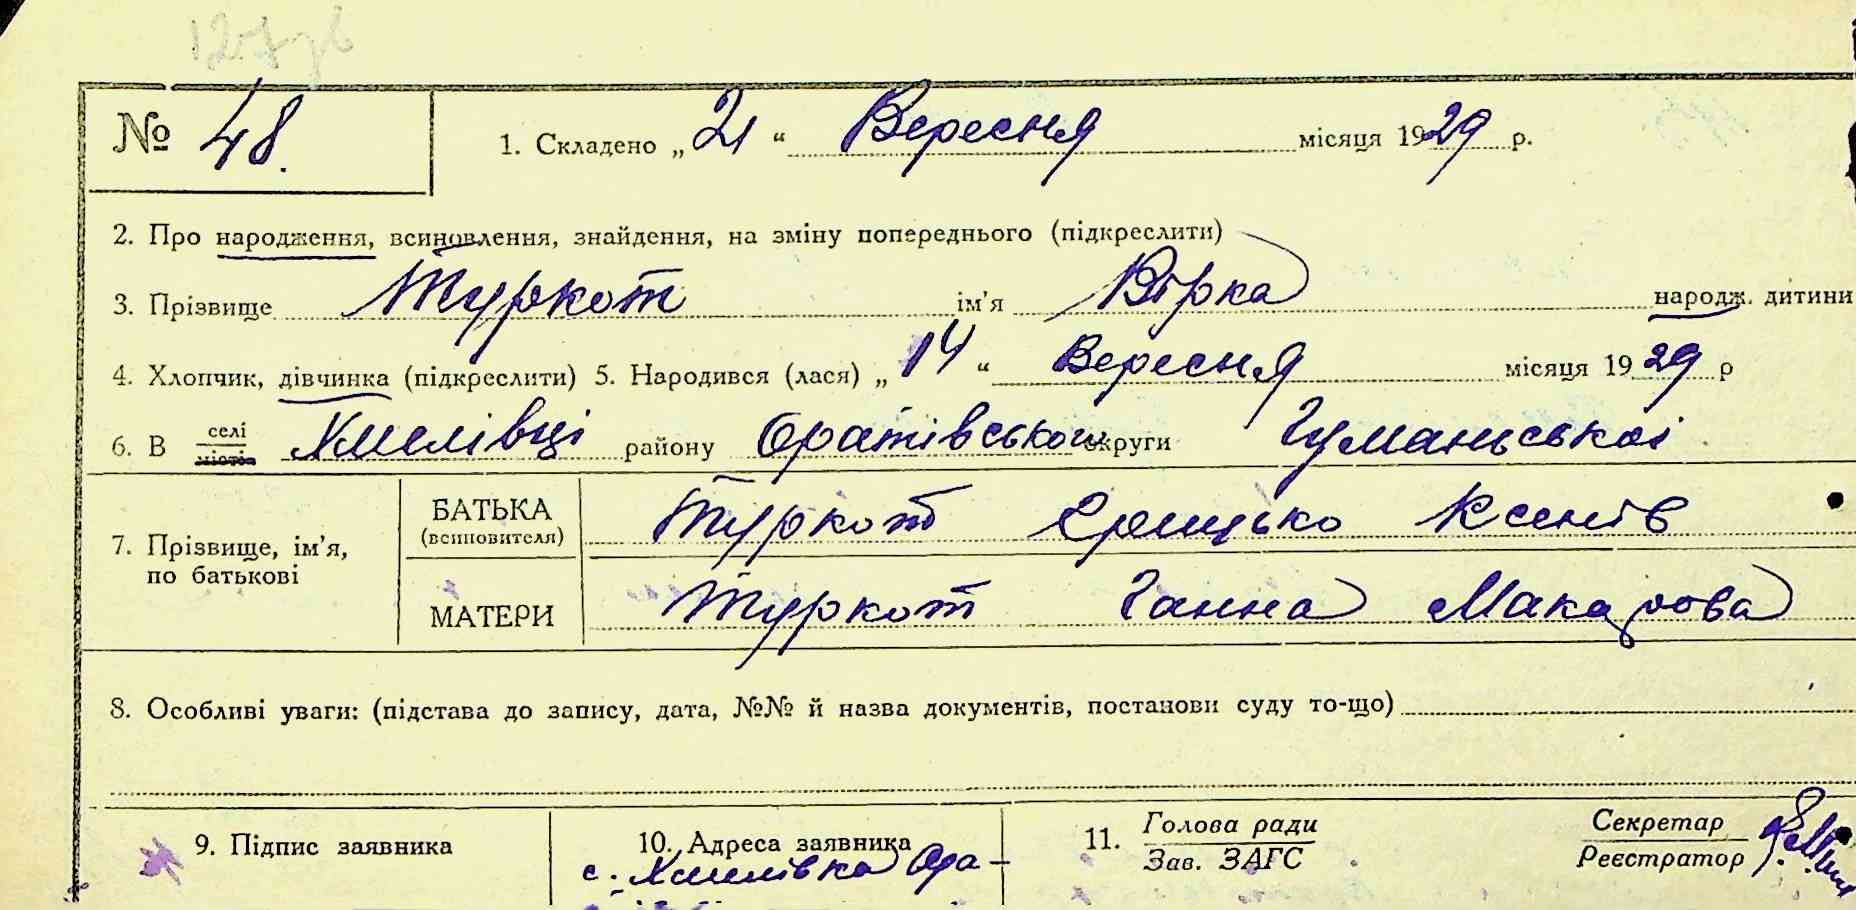 № 48.
1. Складено „21“ Вересня місяця 1929 р.
2. Про народження, всиновлення, знайдення, на зміну попереднього (підкреслити)
3. Прізвище Туркот ім’я Вірка народж. дитини
4. Хлопчик, дівчинка (підкреслити) 5. Народився (лася) „14“ Вересня місяця 1929 р
6. В селі місті Хмелівці району Оратівського округи Гуманьської
7. Прізвище, ім’я, по батькові
БАТЬКА (всиновителя) Туркот Грицько Ксенів
МАТЕРИ Туркот Ганна Макарова
8. Особливі уваги: (підстава до запису, дата, №№ й назва документів, постанови суду то-що)
9. Підпис заявника
10. Адреса заявника
с. Хмилівка Ора–
11. Голова ради
Зав. ЗАГС
Секретар
Реєстратор